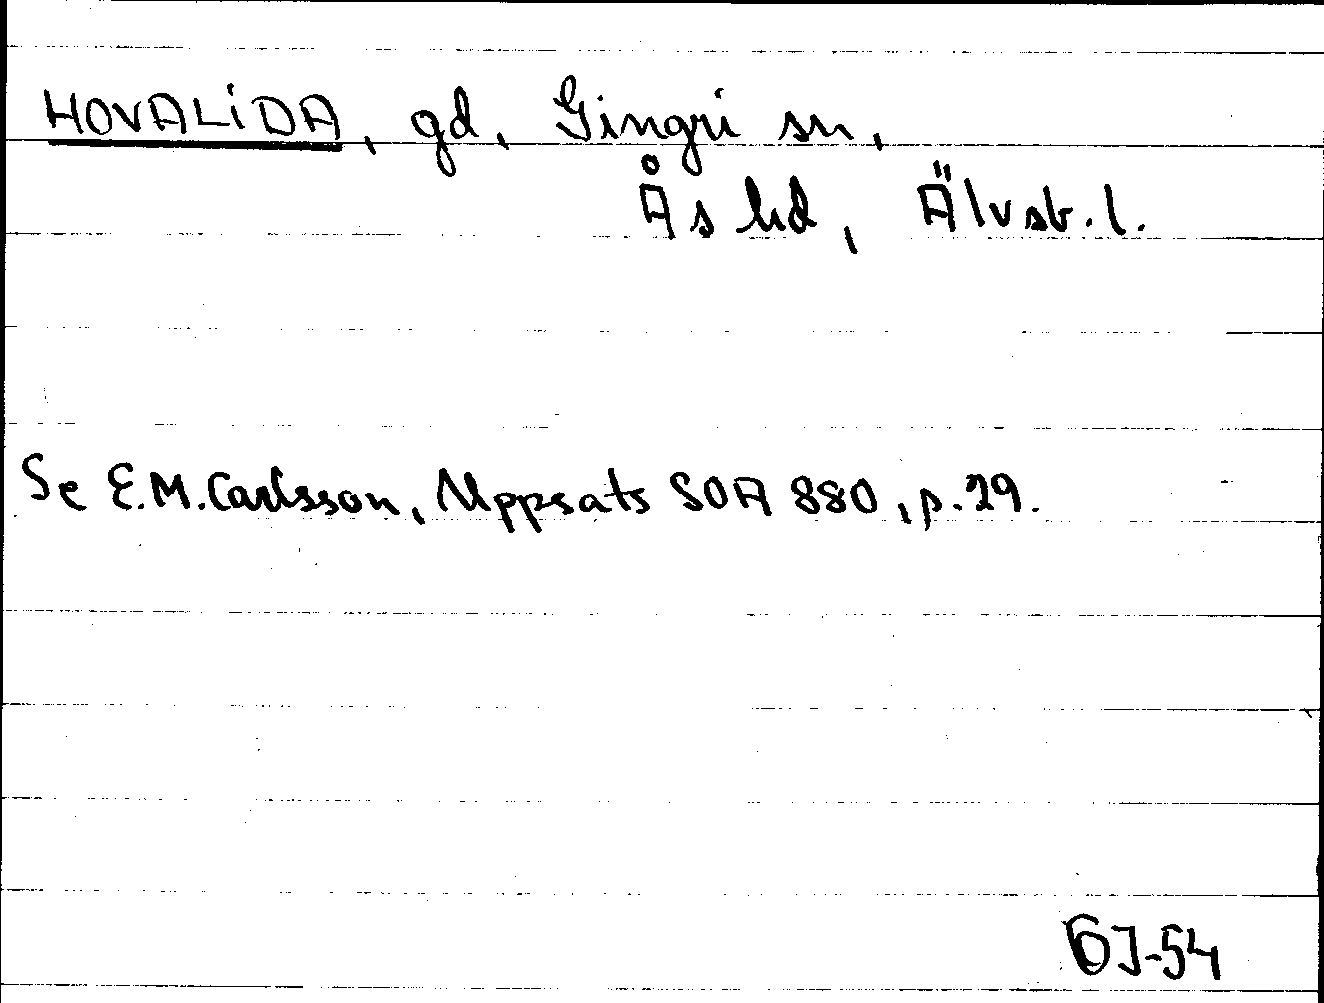 HOVALiDA, gd, Gingri sn,
Ås hd, Älvsb. l.
Se E.M. Carlsson, Uppsats SOA 880, p. 29.
BJ-54